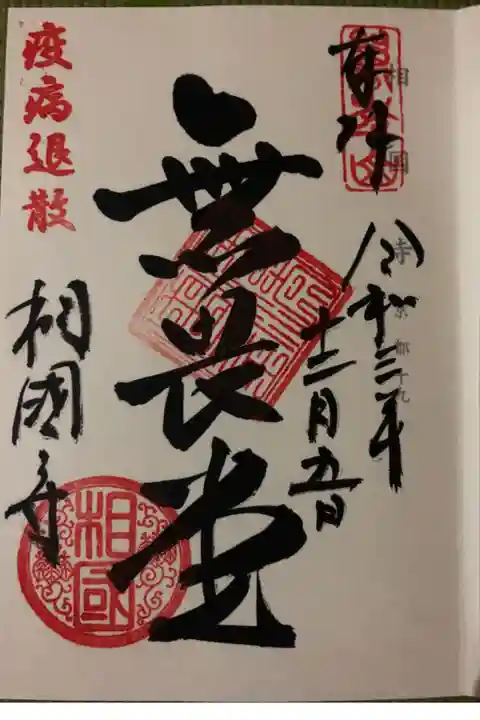 奉拝
萬年山
相國寺 京都十九
令和三年
十二月五日
無畏堂
疫病退散
相國寺
相國